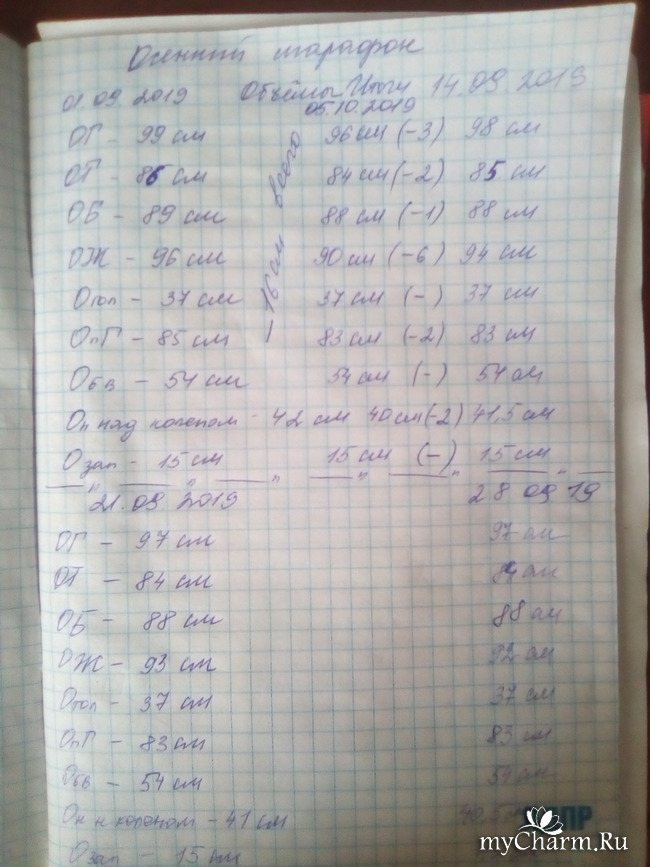 Осенний марафон
01.09.2019 Объёмы Итоги 14.09.2019
05.10.2019
ОГ - 99 см 96 см (-3) 98 см
ОТ - 86 см 84 см (-2) 85 см
ОБ - 89 см 88 см (-1) 88 см
ОЖ - 96 см 90 см (-6) 94 см
Огол - 37 см 37 см (-) 37 см
ОпГ - 85 см 83 см (-2) 83 см
- 16 см всего
- 54 см 54 см (-) 54 см
Оп над коленом - 42 см 40 см (-2) 41,5 см
Озап - 15 см 15 см (-) 15 см
21.09.2019 28 09 19
ОГ - 97 см 97 см
ОТ - 84 см 84 см
ОБ - 88 см 88 см
ОЖ - 93 см 92 см
Огол - 37 см 37 см
ОпГ - 83 см 83 см
- 54 см 54 см
Он н коленом - 41 см
Озап - 15 см
myCharm.Ru